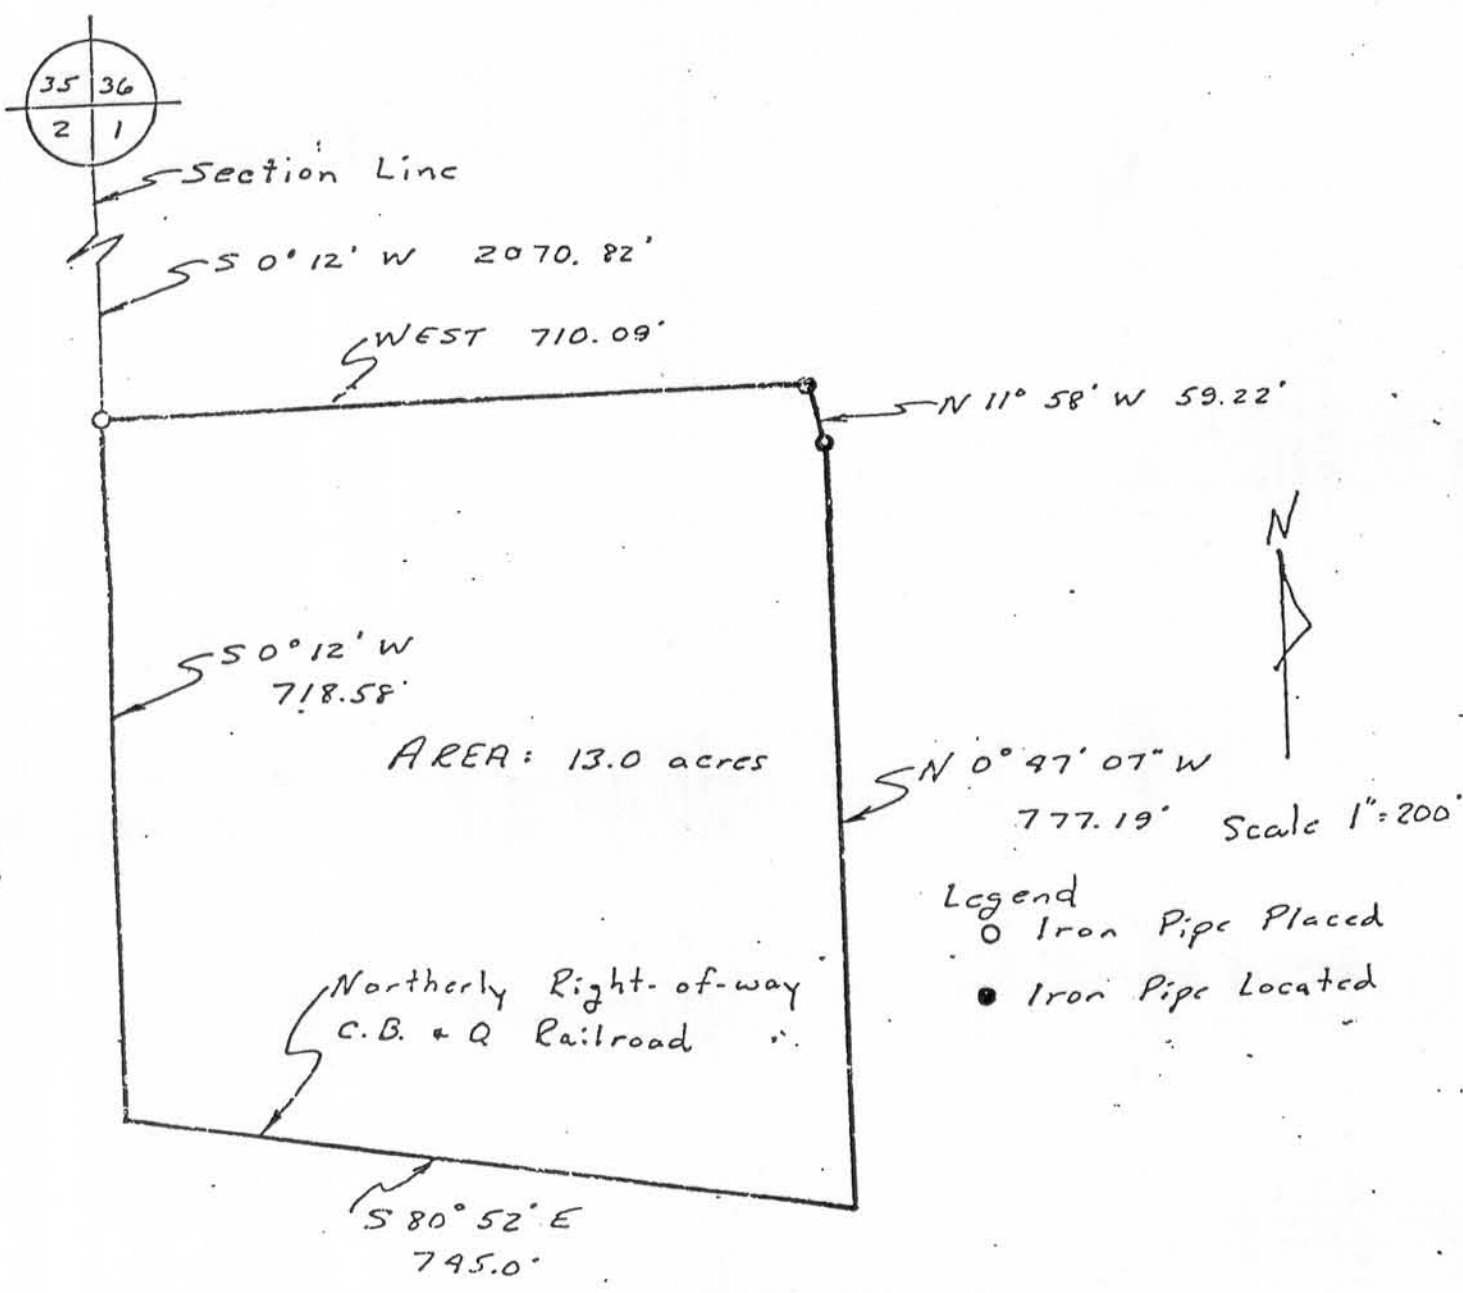 35 36
2 1
Section Line
S 0° 12' W 2070.82'
WEST 710.09'
N 11° 58' W 59.22'
N
S 0° 12' W
718.58'
AREA: 13.0 acres
N 0° 47' 07" W
777.19'
Scale 1"=200'
Legend
Iron Pipe Placed
Iron Pipe Located
Northerly Right-of-way
C.B. & Q Railroad
S 80° 52' E
745.0'